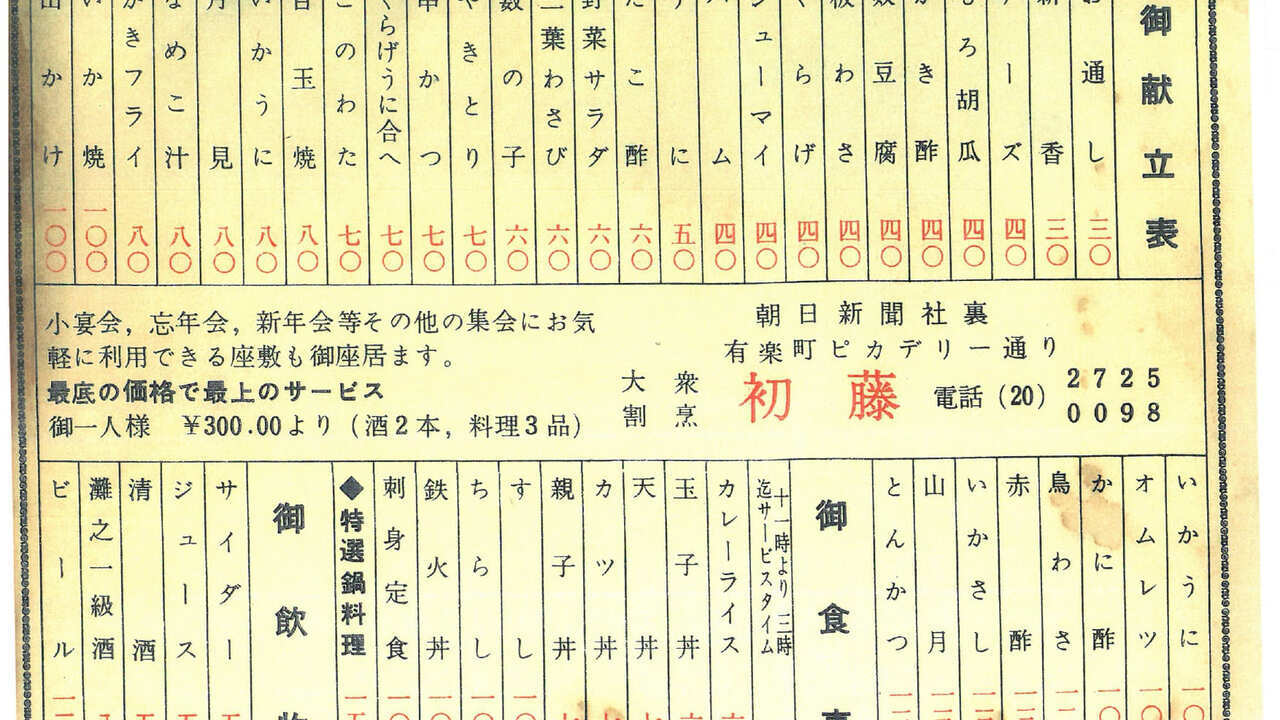 御献立表
お通し 三〇
新香 三〇
ーズ 四〇
もろ胡瓜 四〇
かき酢 四〇
奴豆腐 四〇
板わさ 四〇
くらげ 四〇
シューマイ 四〇
ハム 四〇
に 五〇
たこ酢 六〇
野菜サラダ 六〇
三葉わさび 六〇
数の子 六〇
やきとり 七〇
串かつ 七〇
くらげうに合へ 七〇
このわた 七〇
目玉焼 八〇
いかうに 八〇
月見 八〇
なめこ汁 八〇
かきフライ 八〇
いか焼 一〇〇
山かけ 一〇〇
朝日新聞社裏
有楽町ピカデリー通り
大衆割烹 初藤 電話(20) 2725 0098
小宴会,忘年会,新年会等その他の集会にお気
軽に利用できる座敷も御座居ます。
最底の価格で最上のサービス
御一人様 ¥300.00より(酒2本,料理3品)
いかうに 一〇
オムレツ 一〇
かに酢 一〇
鳥わさ
赤酢
いかさし
山月
とんかつ
御食
十一時より三時
迄サービスタイム
カレーライス
玉子丼
天丼
カツ丼
親子丼
すし
ちらし
鉄火丼
刺身定食
◆特選鍋料理
御飲
サイダー
ジュース
清酒
灘之一級酒
ビール